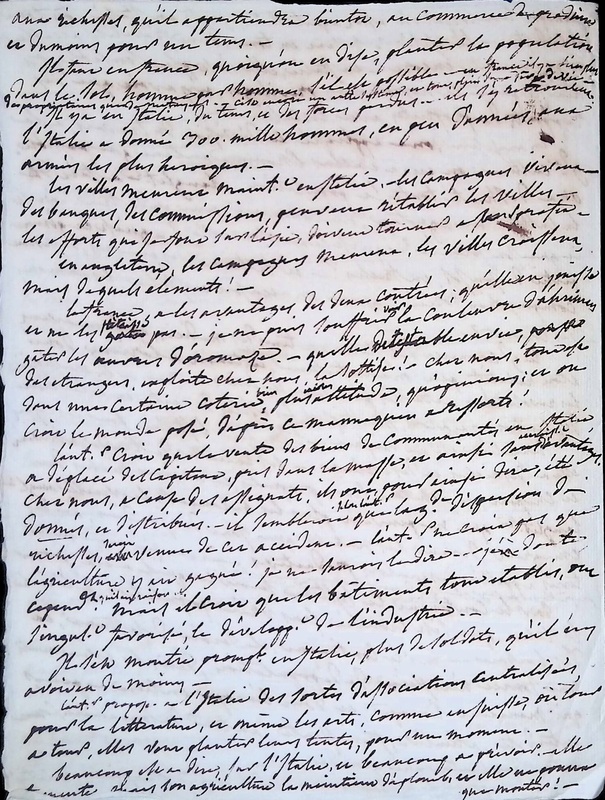 aux richesses, qu'il appartiendra bientot, au commerce de produire
et du moins pour un tems. —
Il faut en france, quoiqu'on en dise, planter la population
dans le sol, homme par homme, s'il est possible —
Il y a en Italie, du tems, et des forces perdus — ils s'y retrouvent
l'Italie a donné 300. mille hommes, en peu d'années, aux
armées les plus heroiques. —
les villes meurent maint.t en Italie, — les campagnes vivent —
des banques, des commissions, peuvent rétablir les villes —
les efforts qui se font sur l'asie, doivent tourner a
en angleterre, les campagnes meurent, les villes croissent,
mais de quels elements! —
la france, a les avantages des deux contrées; qu'elle en jouisse
et ne les pas — je ne puis souffrir la couleuvre d'ahriman
gater les œuvres d'oromaze. — quelle detestable envie,
des etrangers, exploite chez nous, la sottise! — chez nous, tout se
dans une certaine coterie, plus attitude, qu'opinions; et on
croit le monde posé d'après ce mannequin a ressorts!
croit que la vente des biens de communautés en Italie
a déplacé des capitaux, pris dans la masse, et ainsi
chez nous, a cause des assignats, ils ont pour ainsi dire, été
donnés, et distribués — il sembleroit que la dispersion de
richesses, venues de cet accident — ne croit pas que
l'agriculture y ait gagné! je ne saurois le dire — j'en doute
cepend.t mais il croit que les bâtiments tout etablis, ont
singul.t favorisé, le développ.t de l'industrie —
Il s'est montré prompt.t en Italie, plus de soldats, qu'il n'y
avoit eu de moines —
propose a l'Italie des sortes d'associations centralisées
pour la litterature, et même les arts, comme en suisse, où tour
a tour, elles vont planter leurs tentes, pour un moment. —
beaucoup est a dire, sur l'Italie, et beaucoup a prévoir. elle
dans son agriculture la et elle ne pourra
que monter! —